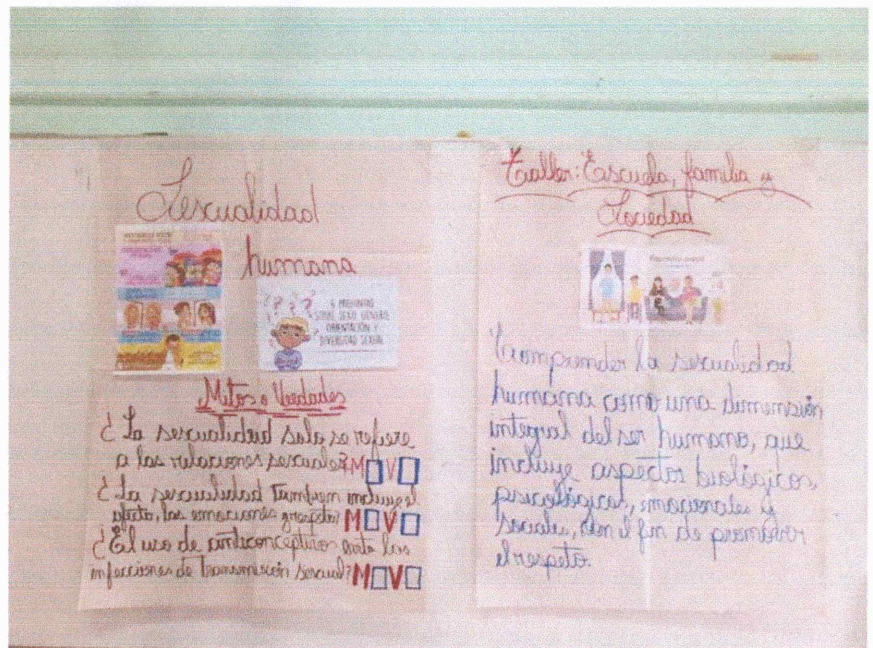 Sexualidad
humana
6 PREGUNTAS
SOBRE SEXO, GÉNERO,
ORIENTACIÓN Y
DIVERSIDAD SEXUAL
Mitos o Verdades
¿La sexualidad solo se refiere
a las relaciones sexuales? M V
¿La sexualidad también incluye
afecto, las emociones y M V
¿El uso de anticonceptivos evita las
infecciones de transmisión sexual? M V
Taller: Escuela, familia y
Sociedad
Comprender la sexualidad
humana como una dimensión
integral del ser humano, que
incluye aspectos biológicos,
psicológicos, emocionales y
sociales, con el fin de promover
el respeto.